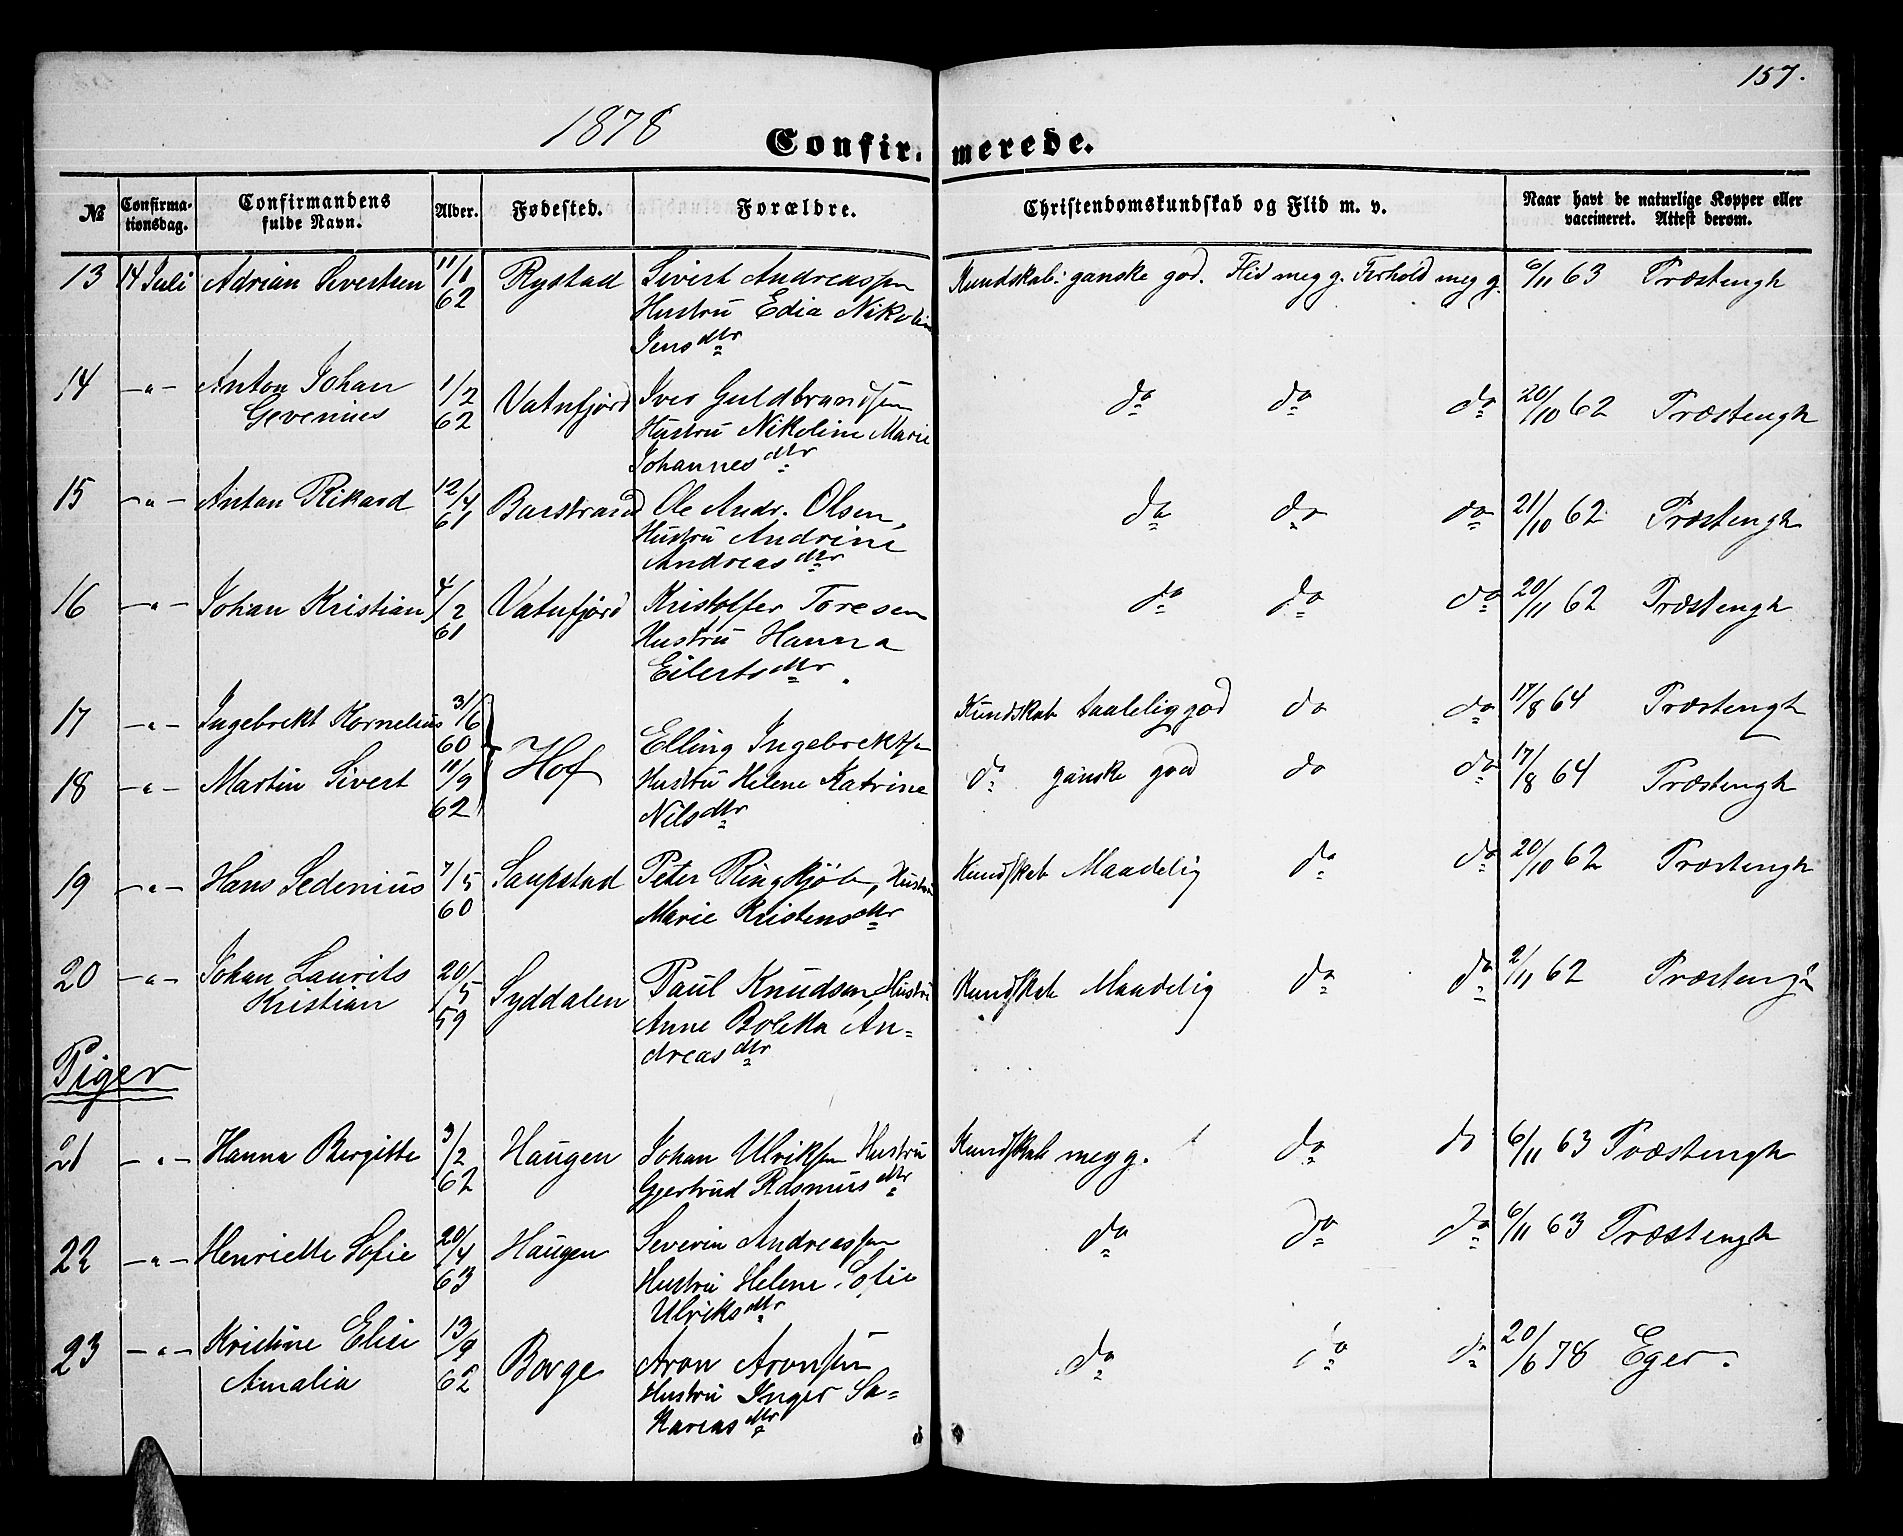 157.
1878
Confirmerede.
№ Confirmationsdag. Confirmandens fulde Navn. Alder. Fødested. Forældre. Christendomskundskab og Flid m. v. Naar havt de naturlige Kopper eller vaccineret. Attest derom.
13 14 Juli Adrian Sivertsen 11/1 62 Rystad Sivert Andreassen Kundskab: ganske god. Flid meg g. Forhold meg g. 6/11 63 Træstengh
Hustru Edia Nikolin
Jensdtr
14 -"- Anton Johan 1/2 62 Vatnfjord Iver Guldbrandsen do do do 20/10 62 Træstengh
Gevenius Hustru Nikoline Marie
Johannesdtr
15 -"- Anton Rikard 12/4 61 Barstrand Ole Andr. Olsen, do do do 21/10 62 Træstengh
Hustru Andrine
Andreasdtr
16 -"- Johan Kristian 4/2 61 Vatnfjord Kristoffer Toresen do do do 20/11 62 Træstengh
Hustru Hanna
Eilertsdtr.
17 -"- Ingebrekt Kornelius 3/6 60 Hof Elling Ingebrektsen Kundskab taalelig god do do 17/8 64 Træstengh
18 -"- Martin Sivert 11/9 62 Hustru Helene Katrine do ganske god do do 17/8 64 Træstengh
Nilsdtr
19 -"- Hans Sedenius 7/5 60 Saupstad Peter Ringkjøb, Hustru Kundskab Maadelig do do 20/10 62 Træstengh
Marie Kristensdtr
20 -"- Johan Laurits 20/5 59 Syddalen Paul Knudsen, Hustru Kundskab Maadelig do do 2/11 62 Træstengh
Kristian Anne Boletta An-
dreasdtr
Piger
21 -"- Hanna Bergitte 3/2 62 Haugen Johan Ulriksen Hustru Kundskab meg g. do do 6/11 63 Træstengh
Gjertrud Rasmusdtr
22 -"- Henriette Sofie 20/4 63 Haugen Severin Andreassen do do do 6/11 63 Træstengh
Hustru Helene Sofie
Ulriksdtr
23 -"- Kristine Elise 13/9 62 Borge Aron Aronsen do do do 20/6 78 Eger.
Amalia Hustru Inger Sa-
kariasdtr